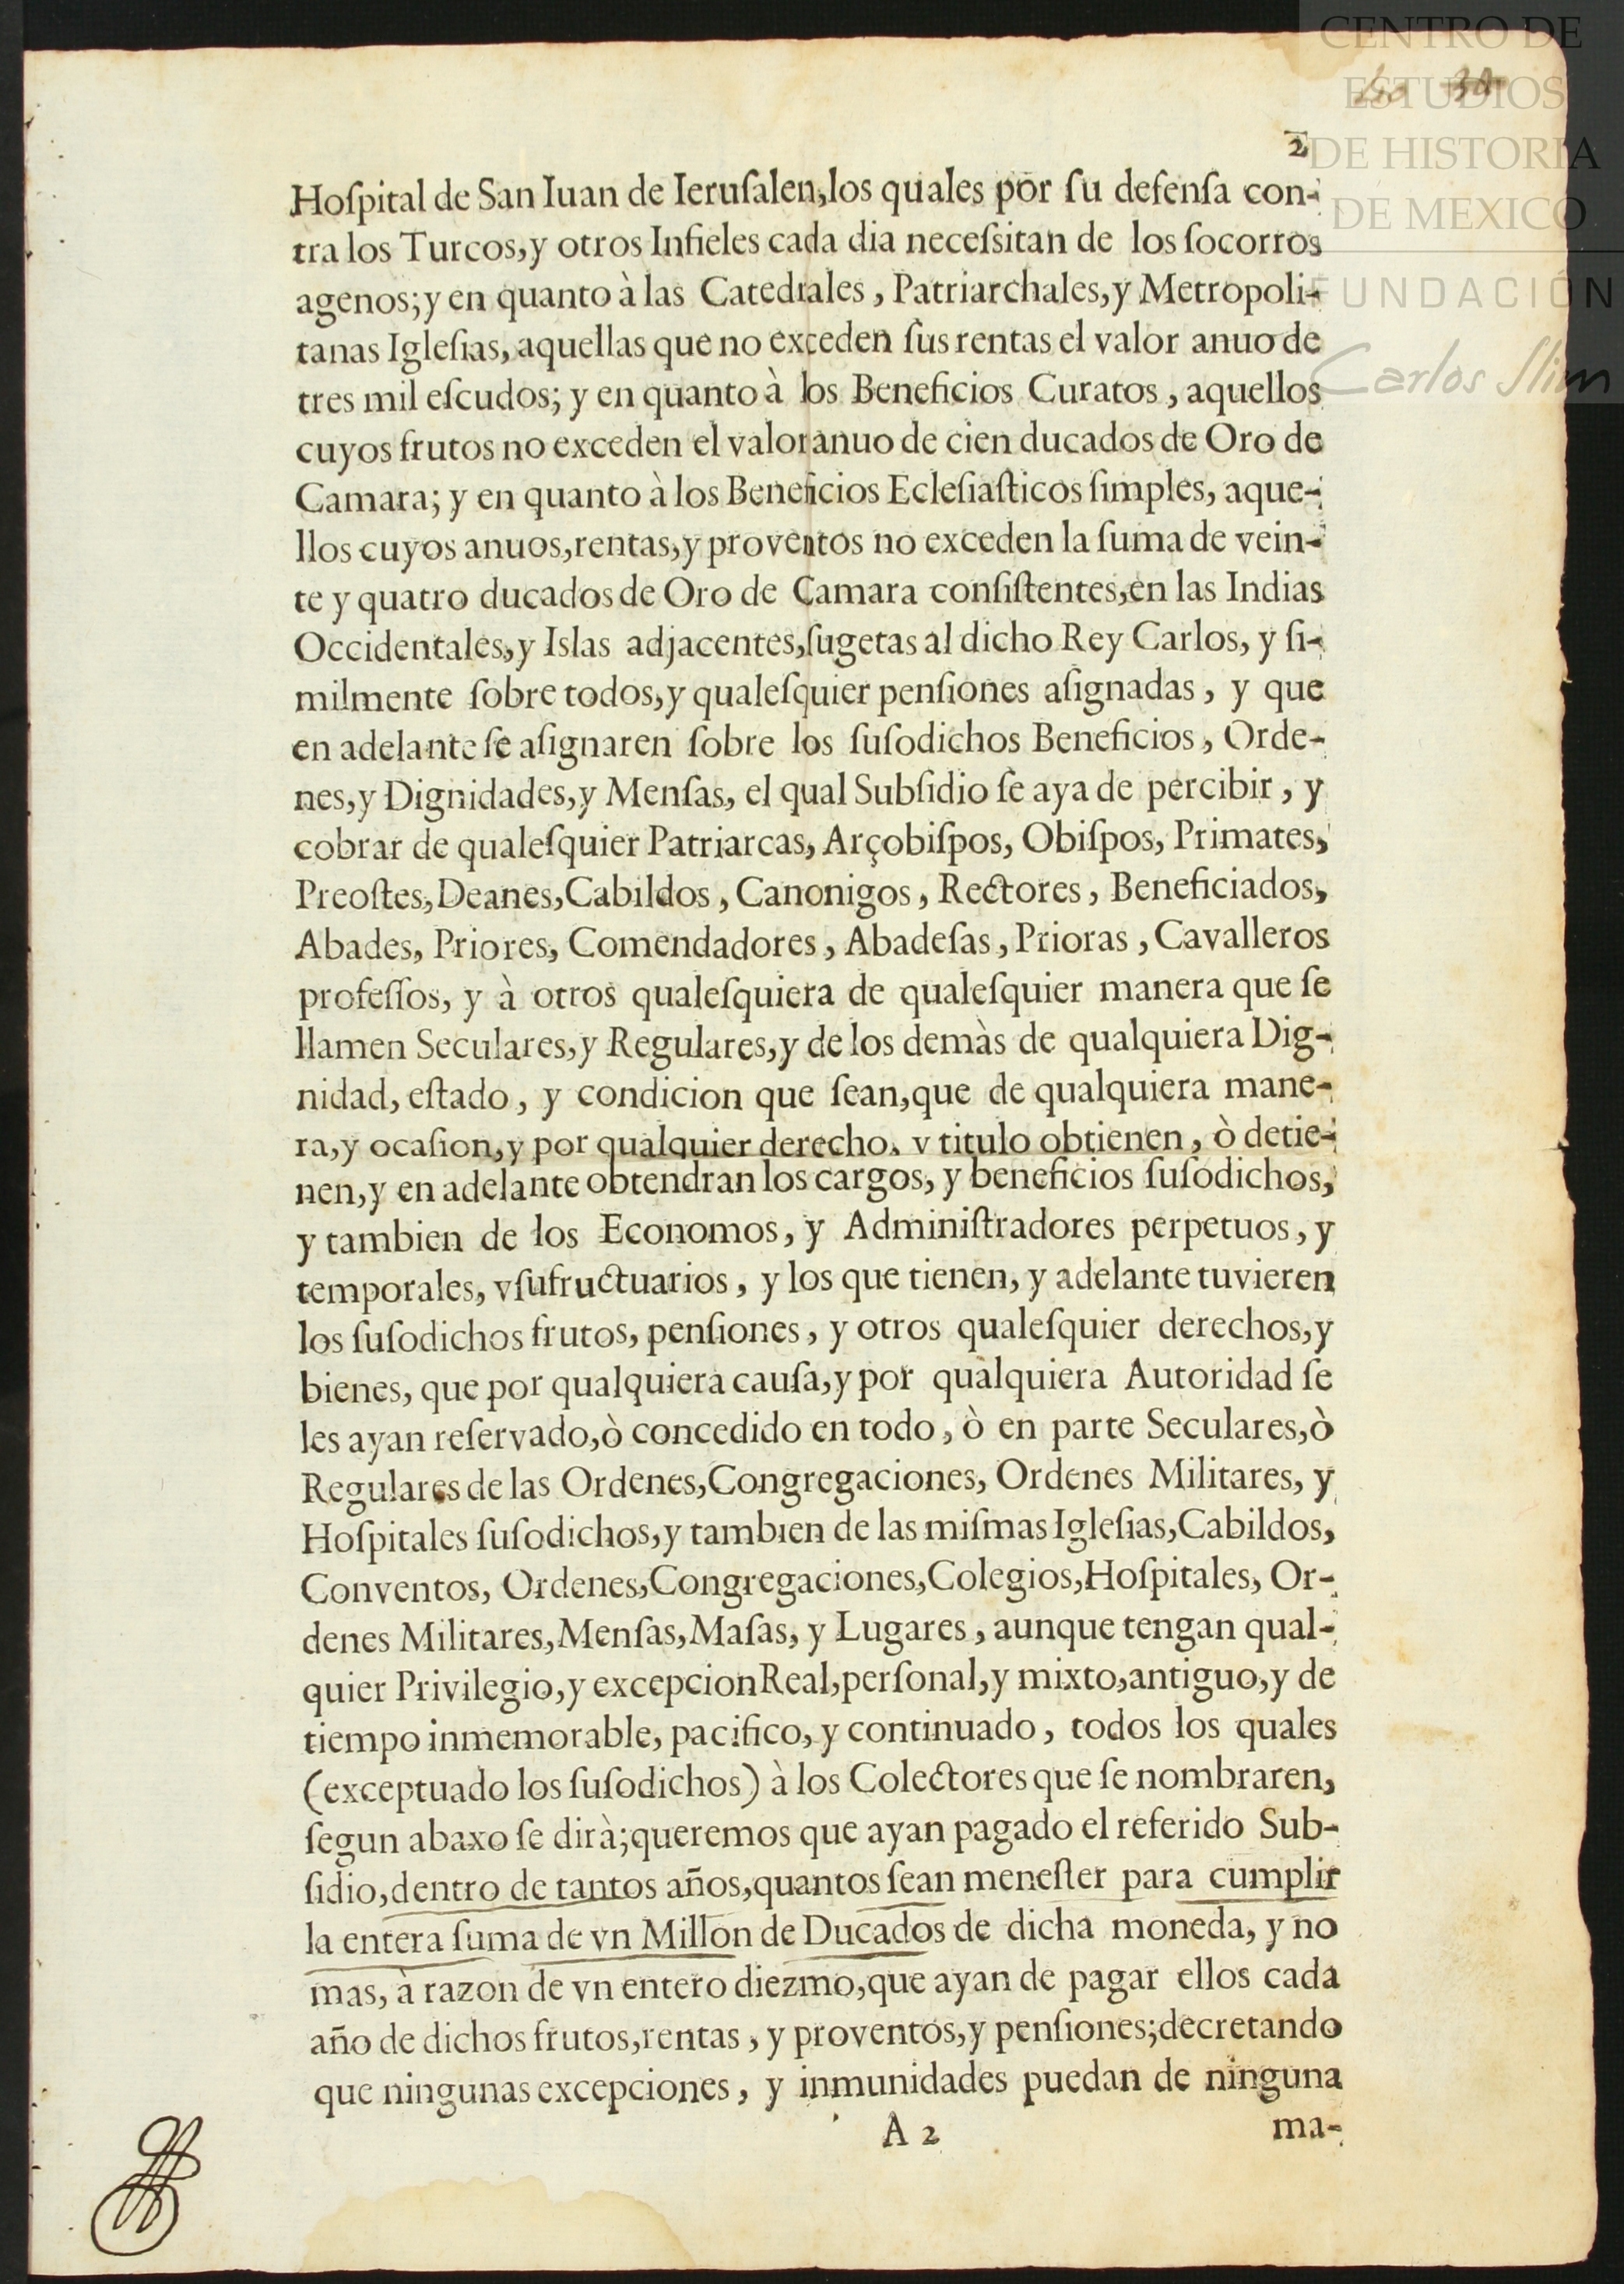 CENTRO DE
ESTUDIOS
DE HISTORIA
DE MEXICO
FUNDACIÓN
Carlos Slim
2
Hoſpital de San Iuan de Ieruſalen,los quales por ſu defenſa con-
tra los Turcos,y otros Infieles cada dia neceſsitan de los ſocorros
agenos;y en quanto à las Catedrales, Patriarchales,y Metropoli-
tanas Igleſias, aquellas que no exceden ſus rentas el valor anuo de
tres mil eſcudos; y en quanto à los Beneficios Curatos, aquellos
cuyos frutos no exceden el valor anuo de cien ducados de Oro de
Camara; y en quanto à los Beneficios Ecleſiaſticos ſimples, aque-
llos cuyos anuos,rentas,y proventos no exceden la ſuma de vein-
te y quatro ducados de Oro de Camara conſiſtentes,en las Indias
Occidentales,y Islas adjacentes,ſugetas al dicho Rey Carlos, y ſi-
milmente ſobre todos,y qualeſquier penſiones aſignadas, y que
en adelante ſe aſignaren ſobre los ſuſodichos Beneficios, Orde-
nes,y Dignidades,y Menſas, el qual Subſidio ſe aya de percibir, y
cobrar de qualeſquier Patriarcas, Arçobiſpos, Obiſpos, Primates,
Preoſtes,Deanes,Cabildos, Canonigos, Rectores, Beneficiados,
Abades, Priores, Comendadores, Abadeſas, Prioras, Cavalleros
profeſſos, y à otros qualeſquiera de qualeſquier manera que ſe
llamen Seculares,y Regulares,y de los demàs de qualquiera Dig-
nidad, eſtado, y condicion que ſean,que de qualquiera mane-
ra,y ocaſion,y por qualquier derecho, y titulo obtienen, ò detie-
nen,y en adelante obtendran los cargos, y beneficios ſuſodichos,
y tambien de los Economos, y Adminiſtradores perpetuos, y
temporales, vſufructuarios, y los que tienen, y adelante tuvieren
los ſuſodichos frutos, penſiones, y otros qualeſquier derechos,y
bienes, que por qualquiera cauſa,y por qualquiera Autoridad ſe
les ayan reſervado,ò concedido en todo, ò en parte Seculares,ò
Regulares de las Ordenes,Congregaciones, Ordenes Militares, y
Hoſpitales ſuſodichos,y tambien de las miſmas Igleſias,Cabildos,
Conventos, Ordenes,Congregaciones,Colegios,Hoſpitales, Or-
denes Militares,Menſas,Maſas, y Lugares, aunque tengan qual-
quier Privilegio,y excepcion Real,perſonal,y mixto,antiguo,y de
tiempo inmemorable, pacifico, y continuado, todos los quales
(exceptuado los ſuſodichos) à los Colectores que ſe nombraren,
ſegun abaxo ſe dirà;queremos que ayan pagado el referido Sub-
ſidio,dentro de tantos años,quantos ſean meneſter para cumplir
la entera ſuma de vn Millon de Ducados de dicha moneda, y no
mas, à razon de vn entero diezmo,que ayan de pagar ellos cada
año de dichos frutos,rentas, y proventos,y penſiones;decretando
que ningunas excepciones, y inmunidades puedan de ninguna
A 2
ma-